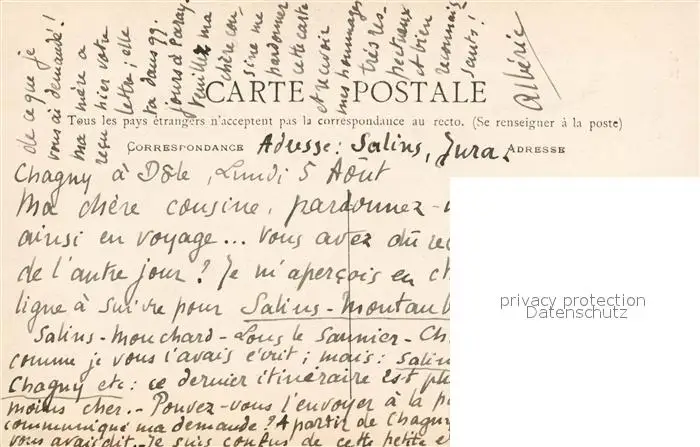 CARTE POSTALE
Tous les pays étrangers n'acceptent pas la correspondance au recto. (Se renseigner à la poste)
CORRESPONDANCE
ADRESSE
Adresse: Salins, Jura.
Chagny à Dôle, Lundi 5 Août
Ma chère cousine, pardonnez-
ainsi en voyage... Vous avez dû
de l'autre jour? Je m'aperçois en
ligne à suivre pour Salins-Montaub
Salins-Mouchard-Lons le Saunier-Ch
comme je vous l'avais écrit; mais: Salin
Chagny etc: ce dernier itinéraire est
moins cher.- Pouvez-vous l'envoyer à la
communiqué ma demande? A partir de Chagny
vous avais dit. Je suis confus de cette petite
de ce que je
vous ai demandé!
ma mère a
reçu hier votre
lettre; elle
va dans qq.
jours à Paray.
Veuillez ma
chère cou-
sine me
pardonner
cette carte
et recevoir
mes hommages
très res-
pectueux
et bien
reconnais-
sants!
Albéric
privacy protection
Datenschutz